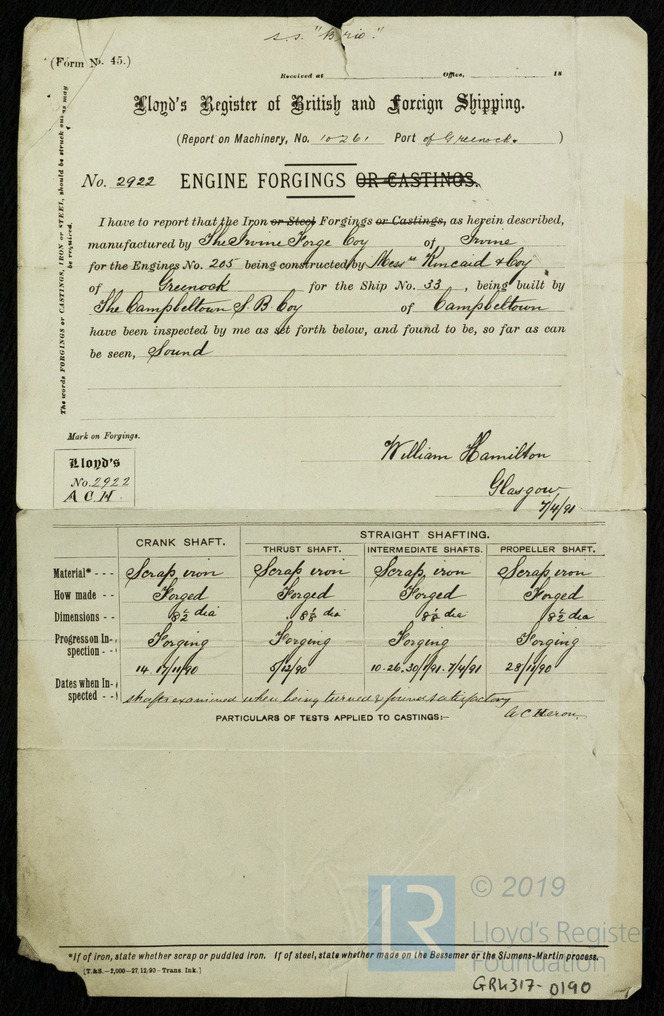 s.s. "Brio."
(Form No. 45.)
Received at Office, 18
Lloyd's Register of British and Foreign Shipping.
(Report on Machinery, No. 10261 Port of Greenock. )
No. 2922 ENGINE FORGINGS OR CASTINGS.
The words FORGINGS or CASTINGS, IRON or STEEL, should be struck out as may
be required.
I have to report that the Iron or Steel Forgings or Castings, as herein described,
manufactured by The Irvine Forge Coy of Irvine
for the Engines No. 205 being constructed by Messrs Kincaid & Coy
of Greenock for the Ship No. 33, being built by
The Campbeltown S. B. Coy of Campbeltown
have been inspected by me as set forth below, and found to be, so far as can
be seen, Sound
William Hamilton
Glasgow
7/4/91
Mark on Forgings.
Lloyd's
No. 2922
A C H
CRANK SHAFT. STRAIGHT SHAFTING.
THRUST SHAFT. INTERMEDIATE SHAFTS. PROPELLER SHAFT.
Material* - - - Scrap iron Scrap iron Scrap iron Scrap iron
How made - - Forged Forged Forged Forged
Dimensions - - 8½ dia 8⅛ dia 8⅛ dia 8½ dia
Progress on In-
spection - - Forging Forging Forging Forging
14. 17/11/90 5/12/90 10. 26. 30/1/91. 7/4/91 28/11/90
Dates when In-
spected - - shafts examined when being turned & found satisfactory
A C Heron.
PARTICULARS OF TESTS APPLIED TO CASTINGS:—
*If of iron, state whether scrap or puddled iron. If of steel, state whether made on the Bessemer or the Siemens-Martin process.
[T.&S.—2,000—27.12.90—Trans. Ink.]
LR © 2019
Lloyd's Register
Foundation
GRK317-0190